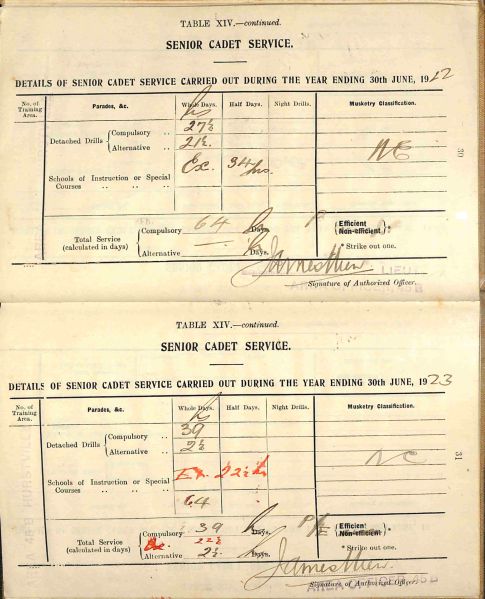 TABLE XIV.—continued.
SENIOR CADET SERVICE.
DETAILS OF SENIOR CADET SERVICE CARRIED OUT DURING THE YEAR ENDING 30th JUNE, 1922
No. of Training Area. Parades, &c. Whole Days. Half Days. Night Drills. Musketry Classification.
hs
Detached Drills { Compulsory .. 27½
Alternative .. 21½
NC
30
Schools of Instruction or Special Courses " " " Ex. 34 hrs.
Total Service (calculated in days) { Compulsory 64 h Days.
Alternative — h Days.
P
{ Efficient Non-efficient }*
* Strike out one.
James Mew
LIEUT
Signature of Authorized Officer.
TABLE XIV.—continued.
SENIOR CADET SERVICE.
DETAILS OF SENIOR CADET SERVICE CARRIED OUT DURING THE YEAR ENDING 30th JUNE, 1923
No. of Training Area. Parades, &c. Whole Days. Half Days. Night Drills. Musketry Classification.
h
Detached Drills { Compulsory .. 39
Alternative .. 2½
NC
31
Schools of Instruction or Special Courses " " " Ex. 22½ h
64
Total Service (calculated in days) { Compulsory 39 h Days.
Ex. 22½
Alternative 2½ h Days.
P/E
{ Efficient Non-efficient }*
* Strike out one.
James Mew.
Signature of Authorized Officer.